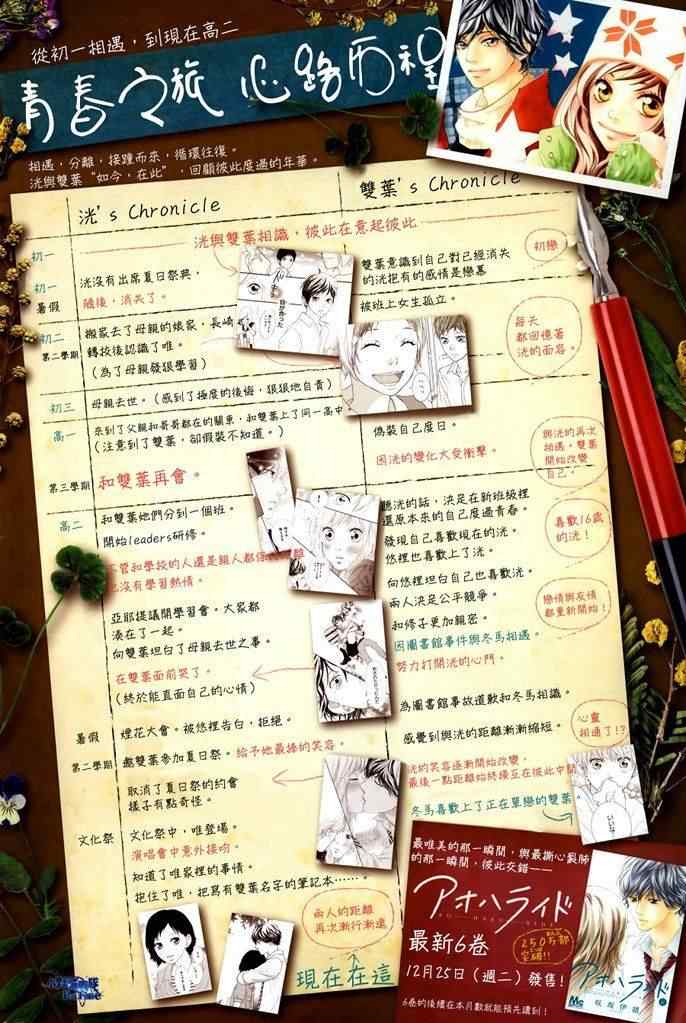 從初一相遇，到現在高二
青春之旅 心路历程
相遇，分離，接踵而來，循環往復。
洸與雙葉“如今，在此”，回顧彼此度過的年華。
洸's Chronicle
雙葉's Chronicle
洸與雙葉相識，彼此在意起彼此
初一
初戀
初一
暑假
洸沒有出席夏日祭典，
隨後，消失了。
雙葉意識到自己對已經消失
的洸抱有的感情是戀慕
被班上女生孤立。
初二
第二學期
搬家去了母親的娘家，長崎
轉校後認識了唯。
（為了母親發狠學習）
每天
都回憶著
洸的面容。
初三
母親去世。（感到了極度的後悔，狠狠地自責）
高一
來到了父親和哥哥都在的關東，和雙葉上了同一高中
（注意到了雙葉，卻假裝不知道。）
偽裝自己度日。
因洸的變化大受衝擊。
與洸的再次
相遇，雙葉
開始改變
自己。
第三學期
和雙葉再會。
高二
和雙葉她們分到一個班。
開始leaders研修。
聽洸的話，決定在新班級裡
還原本來的自己度過青春。
發現自己喜歡現在的洸。
悠裡也喜歡上了洸。
喜歡16歲
的洸！
不管和學校的人還是鎖人都
也沒有學習熱情。
向悠裡坦白自己也喜歡洸。
兩人決定公平競爭。
和修子更加親密。
因圖書館事件與冬馬相遇。
努力打開洸的心門。
戀情與友情
都重新開始！
亞耶提議開學習會。大家都
湊在了一起。
向雙葉坦白了母親去世之事。
在雙葉面前哭了。
（終於能直面自己的心情）
為圖書館事故道歉和冬馬相識。
暑假
煙花大會。被悠裡告白，拒絕。
感覺到與洸的距離漸漸縮短。
心靈
相通了!?
第二學期
邀雙葉參加夏日祭。給予她最棒的笑容。
取消了夏日祭的約會
樣子有點奇怪。
洸的笑容逐漸開始改變。
最後一點距離始終橫亙在彼此中間
冬馬喜歡上了正在單戀的雙葉。
文化祭
文化祭中，唯登場。
演唱會中意外接吻。
知道了唯家裡的事情。
抱住了唯，把寫有雙葉名字的筆記本……。
兩人的距離
再次漸行漸遠
現在在這
最唯美的那一瞬間，與最撕心裂肺
的那一瞬間，彼此交錯——
アオハライド
最新6卷
250万部
突破!!
12月25日（週二）發售！
6卷的後續在本月數就能預先讀到！
アオハライド
咲坂伊緒